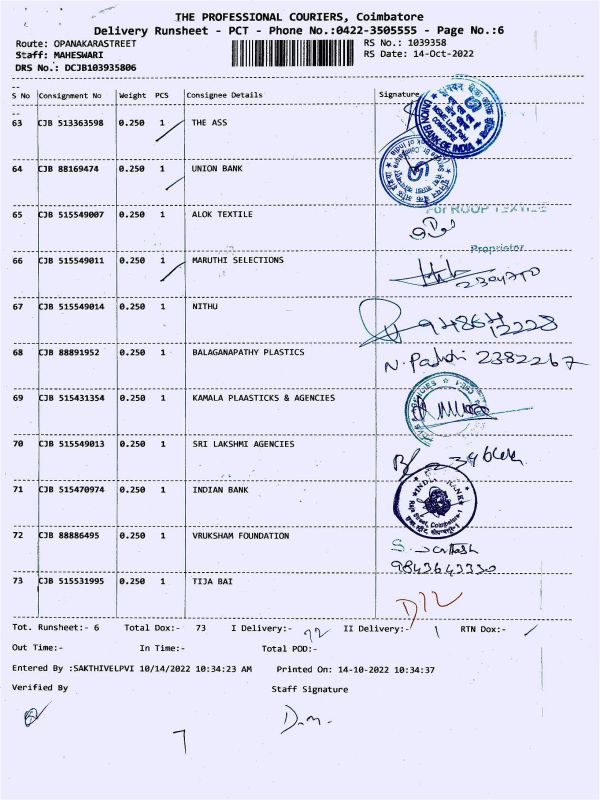 THE PROFESSIONAL COURIERS, Coimbatore
Delivery Runsheet - PCT - Phone No.:0422-3505555 - Page No.:6
Route: OPANAKARASTREET RS No.: 1039358
Staff: MAHESWARI RS Date: 14-Oct-2022
DRS No.: DCJB103935806
S No Consignment No Weight PCS Consignee Details Signature
63 CJB 513363598 0.250 1 THE ASS
UNION BANK OF INDIA
64 CJB 88169474 0.250 1 UNION BANK
65 CJB 515549007 0.250 1 ALOK TEXTILE
For ROOP TEXTILE
Proprietor
66 CJB 515549011 0.250 1 MARUTHI SELECTIONS
67 CJB 515549014 0.250 1 NITHU
9486412228
68 CJB 88891952 0.250 1 BALAGANAPATHY PLASTICS
2382267
69 CJB 515431354 0.250 1 KAMALA PLAASTICKS & AGENCIES
70 CJB 515549013 0.250 1 SRI LAKSHMI AGENCIES
71 CJB 515470974 0.250 1 INDIAN BANK
INDIAN BANK
72 CJB 88886495 0.250 1 VRUKSHAM FOUNDATION
9843643330
73 CJB 515531995 0.250 1 TIJA BAI
Tot. Runsheet:- 6 Total Dox:- 73 I Delivery:- 72 II Delivery:- 1 RTN Dox:-
Out Time:- In Time:- Total POD:-
Entered By :SAKTHIVELPVI 10/14/2022 10:34:23 AM Printed On: 14-10-2022 10:34:37
Verified By Staff Signature
7